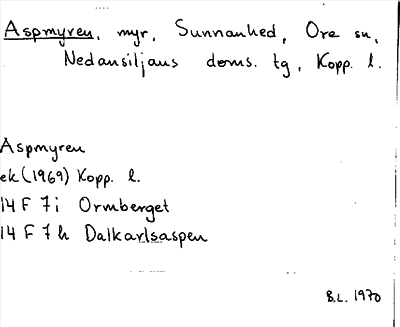 Aspmyren, myr, Sunnanhed, Ore sn,
Nedansiljans doms. tg, Kopp. l.
Aspmyren
ek (1969) Kopp. l.
14 F 7 i Ormberget
14 F 7 h Dalkarlsaspen
B.L. 1970